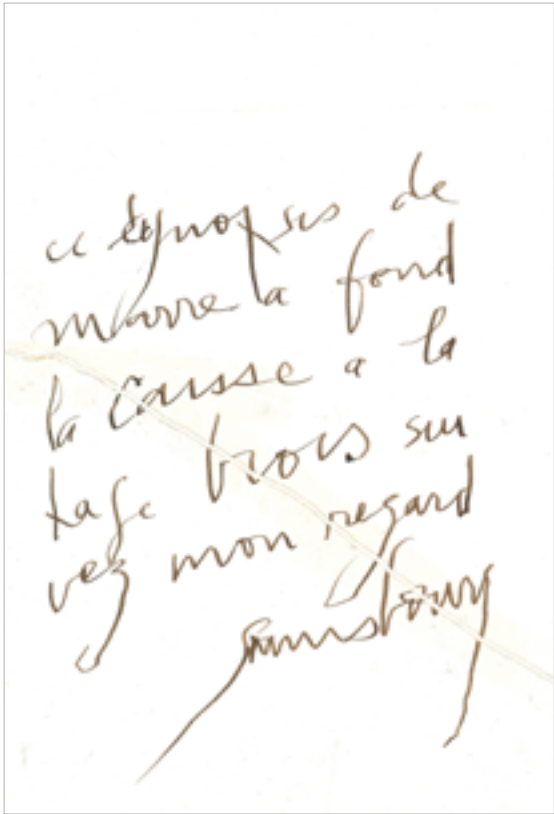 ce synopsis de
marre a fond
la caisse a la
page trois suı
vez mon regard
Gainsbourg